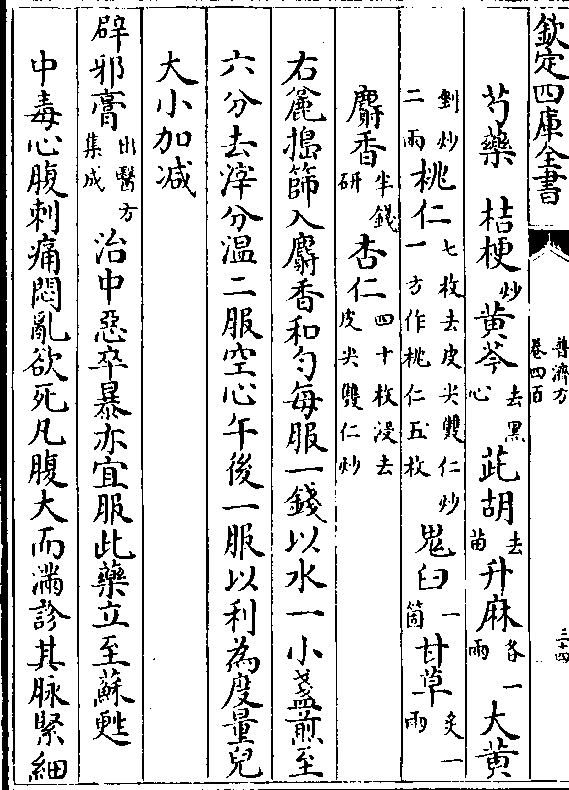 欽定四庫全書
普濟方
卷四百
三十四
芍藥 桔梗炒 黄芩去黑心 茈胡去苗 升麻各一兩 大黄
剉炒二兩 桃仁七枚去皮尖雙仁炒一方作桃仁五枚 鬼臼一箇 甘草炙一兩
麝香半錢研 杏仁四十枚浸去皮尖雙仁炒
右麄搗篩入麝香和勻每服一錢以水一小盞煎至
六分去滓分温二服空心午後一服以利為度量兒
大小加减
辟邪膏出醫方集成 治中惡卒暴亦宜服此藥立至蘇甦
中毒心腹刺痛悶亂欲死凡腹大而滿診其脉緊細